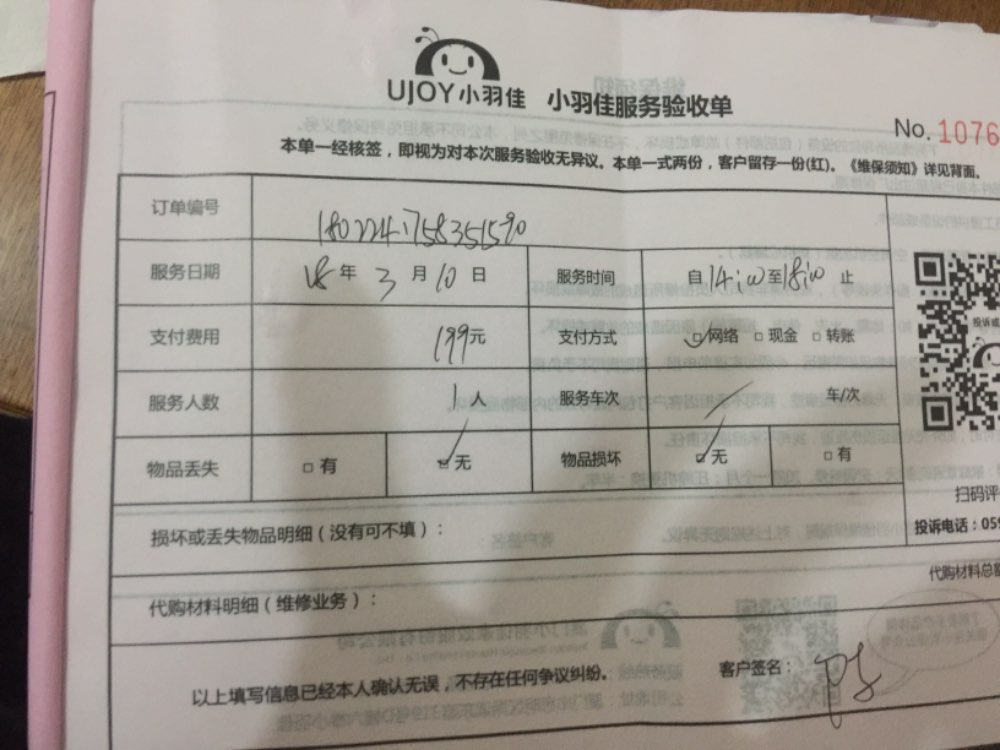 UJOY小羽佳 小羽佳服务验收单
No. 1076
本单一经核签，即视为对本次服务验收无异议。本单一式两份，客户留存一份(红)。《维保须知》详见背面。
订单编号 1802241758351590
服务日期 18年3月10日 服务时间 自14:00至18:00止
支付费用 199元 支付方式 □网络 □现金 □转账
服务人数 1人 服务车次 车/次
物品丢失 □有 □无 物品损坏 □无 □有
扫码评
损坏或丢失物品明细（没有可不填）：
投诉电话：059
代购材料总额
代购材料明细（维修业务）：
以上填写信息已经本人确认无误，不存在任何争议纠纷。 客户签名：